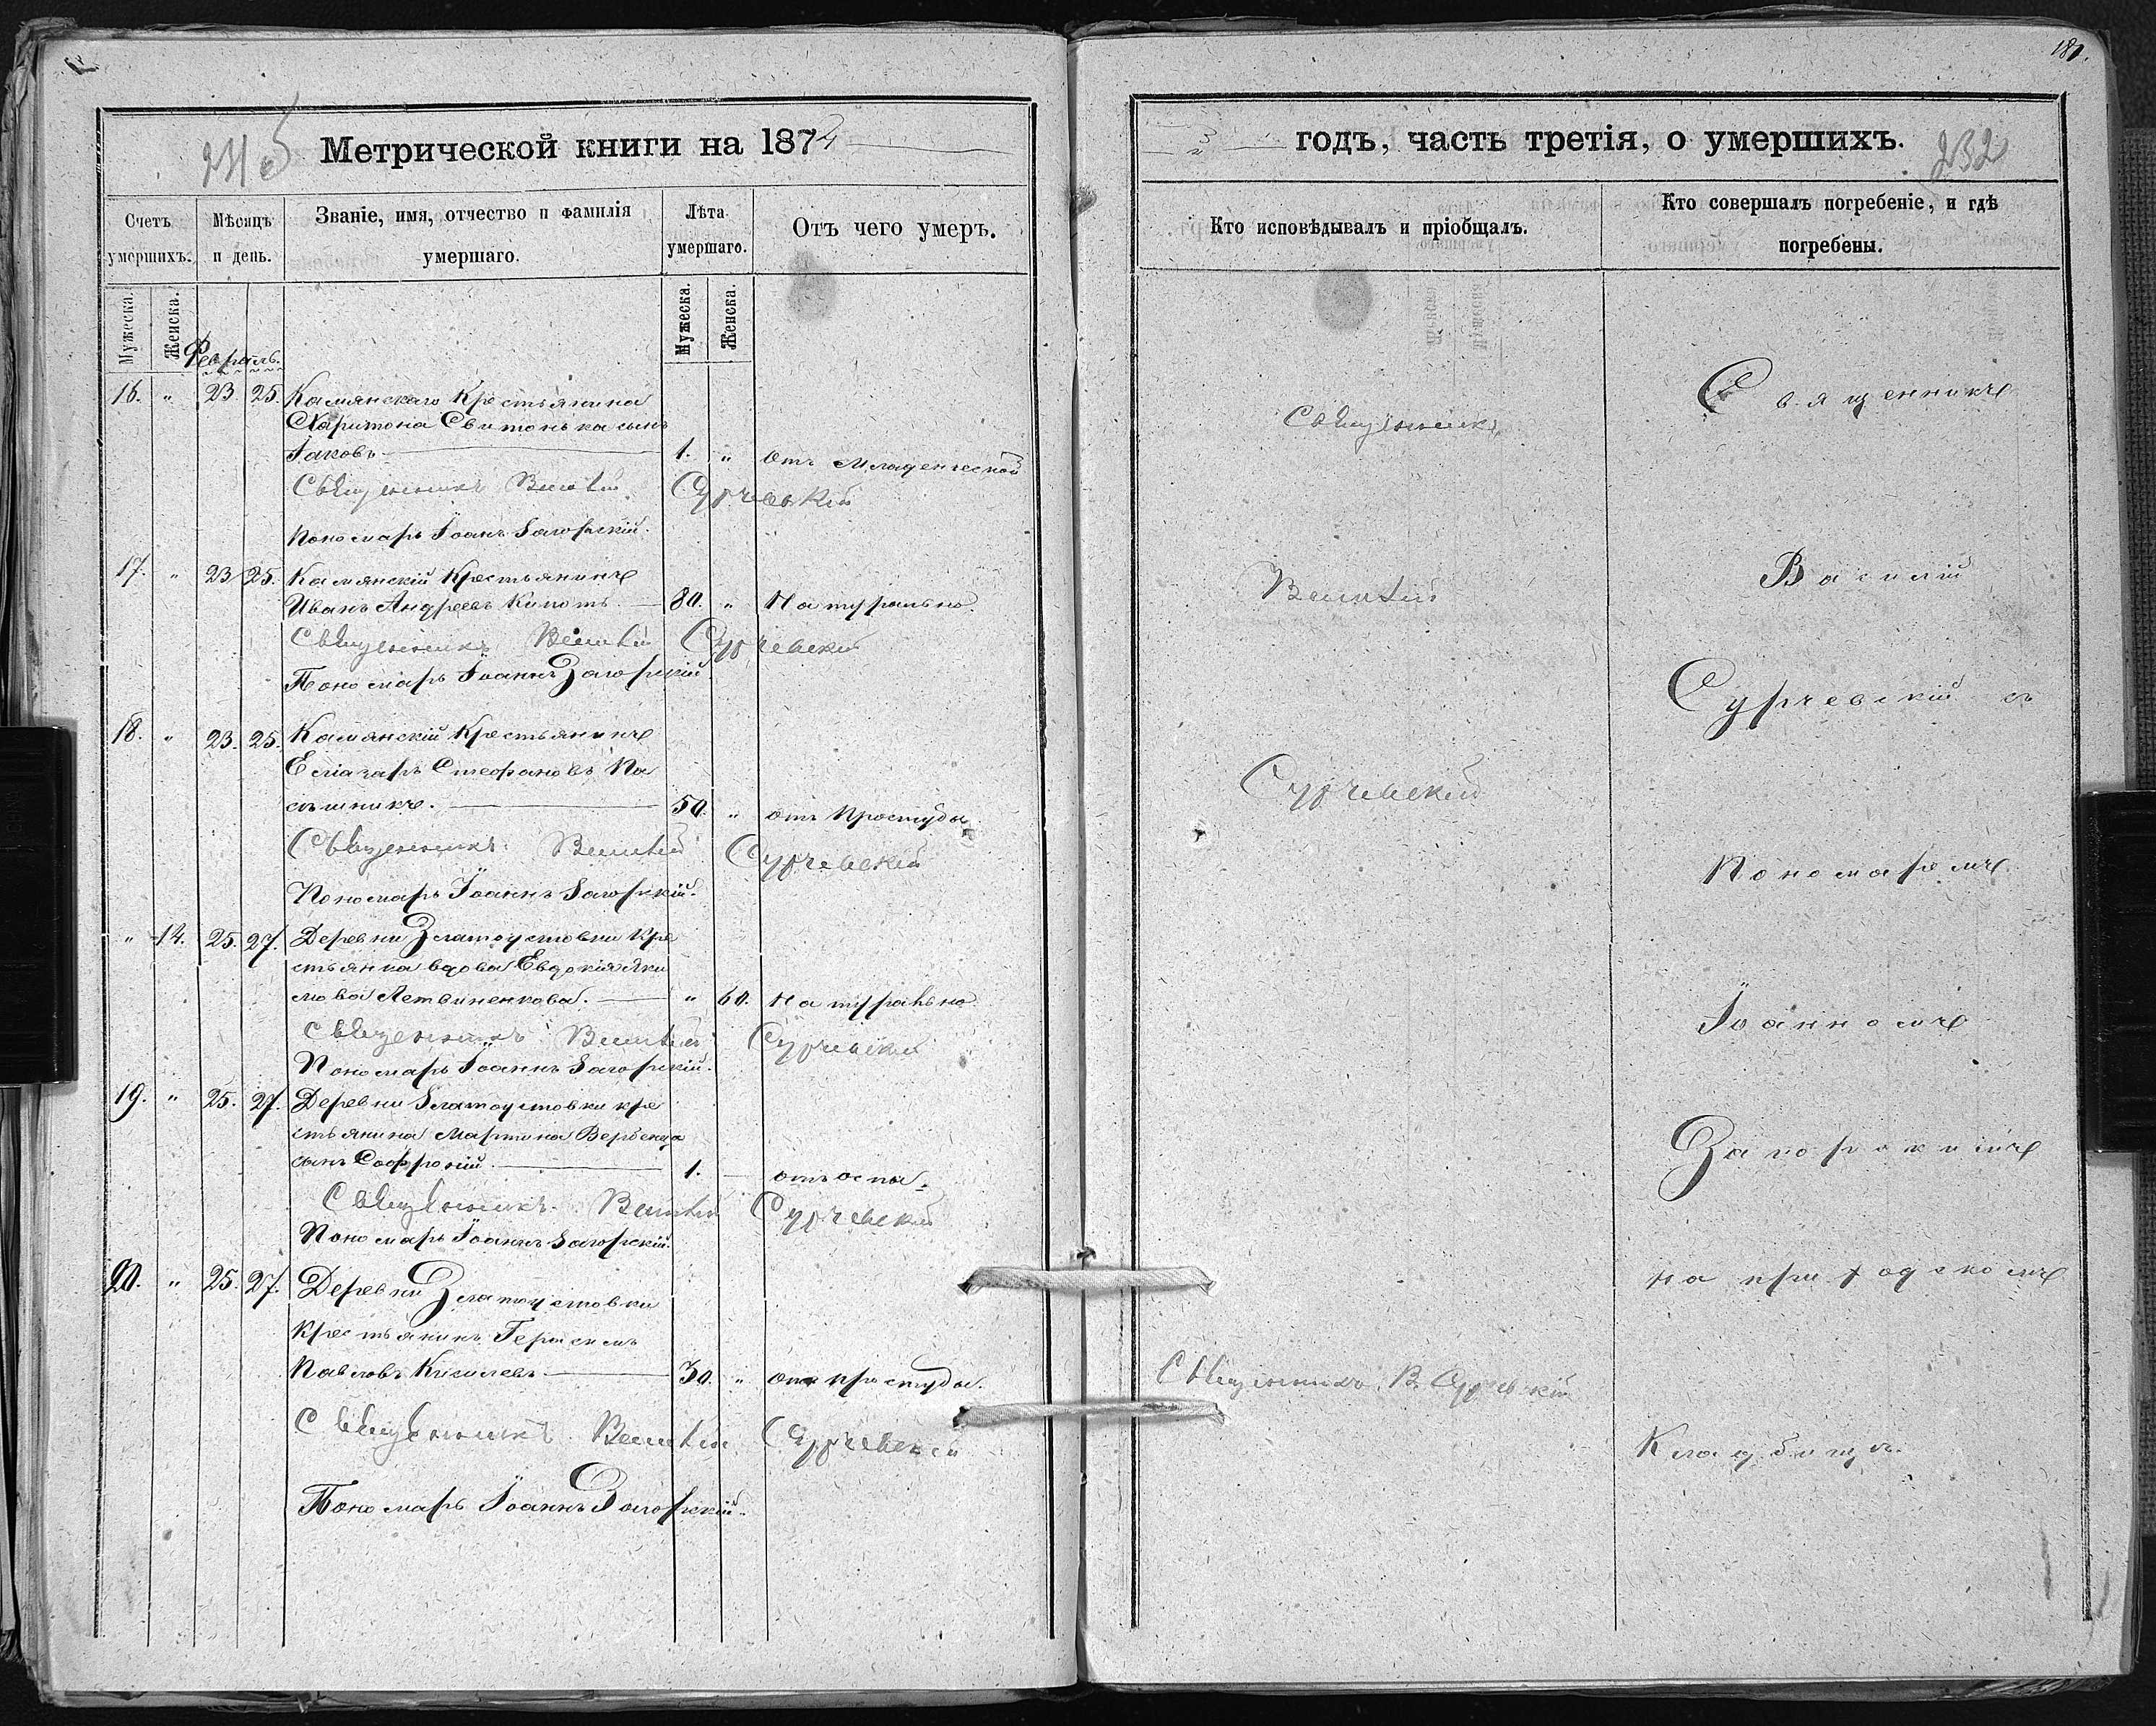 181.
Метрической книги на 1872
годъ, часть третія, о умершихъ.
232
Счетъ умершихъ.
Мѣсяцъ и день.
Званіе, имя, отчество и фамилія умершаго.
Лѣта умершаго.
Отъ чего умеръ.
Кто исповѣдывалъ и пріобщалъ.
Кто совершалъ погребеніе, и гдѣ погребены.
Мужеска.
Женска.
Мужеска.
Женска.
Февраль.
16. " 23. 25. Камянскаго Крестьянина
Харитона Свитонька сынъ
Іаковъ 1. " отъ младенческой
Священникъ Василій Сурчевскій
Пономарь Іоанъ Загорскій.
17. " 23 25. Камянскій Крестьянинъ
Иванъ Андреевъ 80. " Натурально.
Священникъ Василій Сурчевскій
Пономарь Іоаннъ Загорскій
18. " 23. 25. Камянскій Крестьянинъ
Елiазаръ Стефановъ Па
сѣшникъ. 50. " отъ простуды
Священникъ Василій Сурчевскій
Пономарь Іоаннъ Загорскій.
" 14. 25. 27. Деревни Златоустовки кре
стьянка вдова Евдокія Яки
мова Летвиненкова. " 60. Натурально
Священникъ Василій Сурчевскій
Пономарь Іоаннъ Загорскій.
19. " 25. 27. Деревни Златоустовки кре
стьянина Мартина Вербенца
сынъ Софроній 1. отъ оспы.
Священникъ Василій Сурчевскій
Пономарь Іоаннъ Загорскій.
20. " 25. 27. Деревни Златоустовки
крестьянинъ Герасимъ
Павловъ Киселевъ 30. " отъ простуды.
Священникъ Василій Сурчевскій
Пономарь Іоаннъ Загорскій.
Священникъ
Василій
Сурчевскій
Священникъ В. Сурчевскій
Священникъ
Василій
Сурчевскій съ
Пономаремъ
Іоанномъ
Загорскимъ
на приходскомъ
Кладбищѣ.